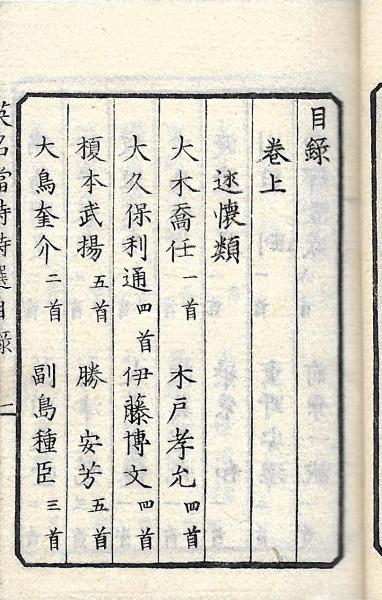 目録
巻上
述懷類
大木喬任 一首 木戸孝允 四首
大久保利通 四首 伊藤博文 四首
榎本武揚 五首 勝安芳 五首
大鳥奎介 二首 副島種臣 三首
英名當時詩選目録 一